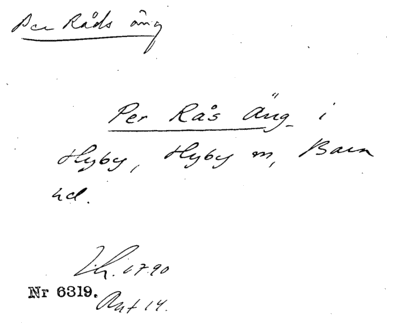 Per Råds äng
Per Rås Äng i
Hyby, Hyby m, Bara
hd.
Lh. 1790
Nr 6319.
Ant 14.